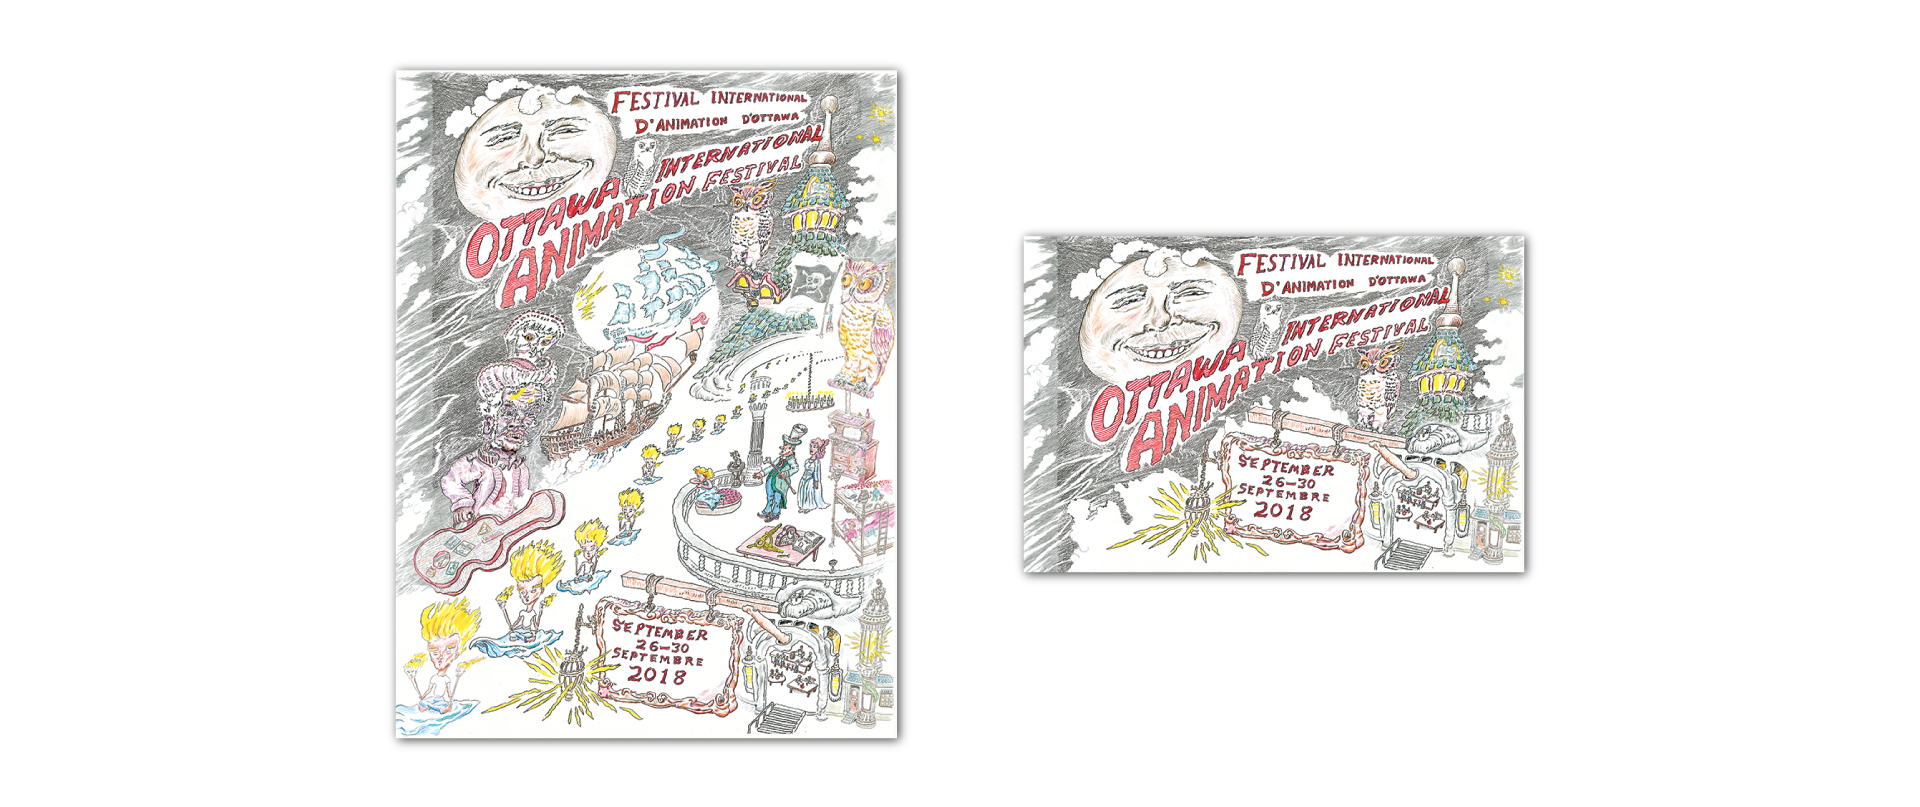 FESTIVAL INTERNATIONAL
D'ANIMATION D'OTTAWA
OTTAWA INTERNATIONAL
ANIMATION FESTIVAL
SEPTEMBER
26–30
SEPTEMBRE
2018
FESTIVAL INTERNATIONAL
D'ANIMATION D'OTTAWA
OTTAWA INTERNATIONAL
ANIMATION FESTIVAL
SEPTEMBER
26–30
SEPTEMBRE
2018